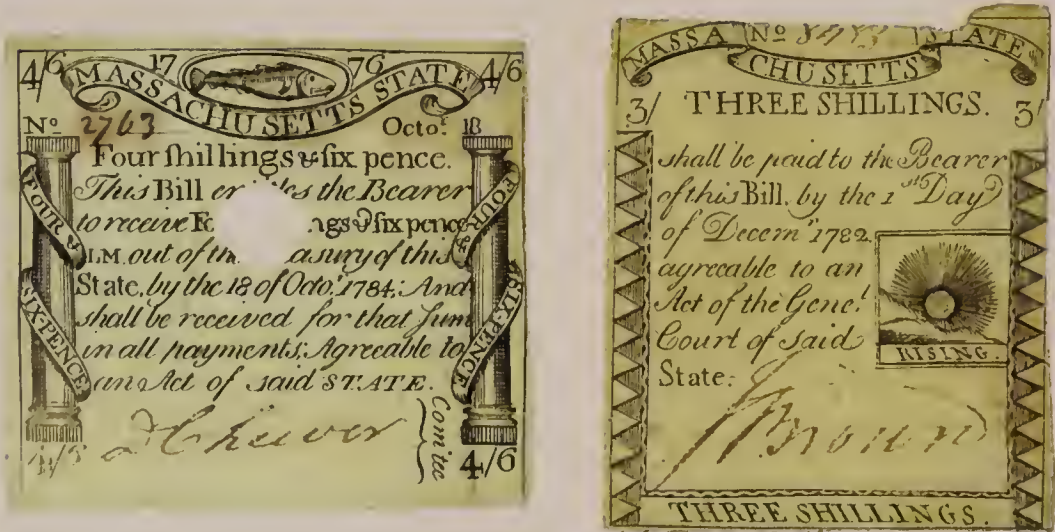 4/6 17 76 4/6
MASSACHUSETTS STATE
No 2763 Octo. 18
Four shillings & six pence.
This Bill the Bearer
to receive ngs & six pence
LM. out of the asury of this
State, by the 18 of Octo. 1784; And
shall be received for that Sum
in all payments; Agreeable to
an Act of said STATE.
FOUR &
SIX-PENCE
FOUR &
SIX-PENCE
Comtee
4/6
MASSA No STATE
CHUSETTS
3/ THREE SHILLINGS. 3/
shall be paid to the Bearer
of this Bill, by the 1st Day
of Decemr 1782.
agreeable to an
Act of the Genel.
Court of said
State.
RISING.
J Brown
THREE SHILLINGS